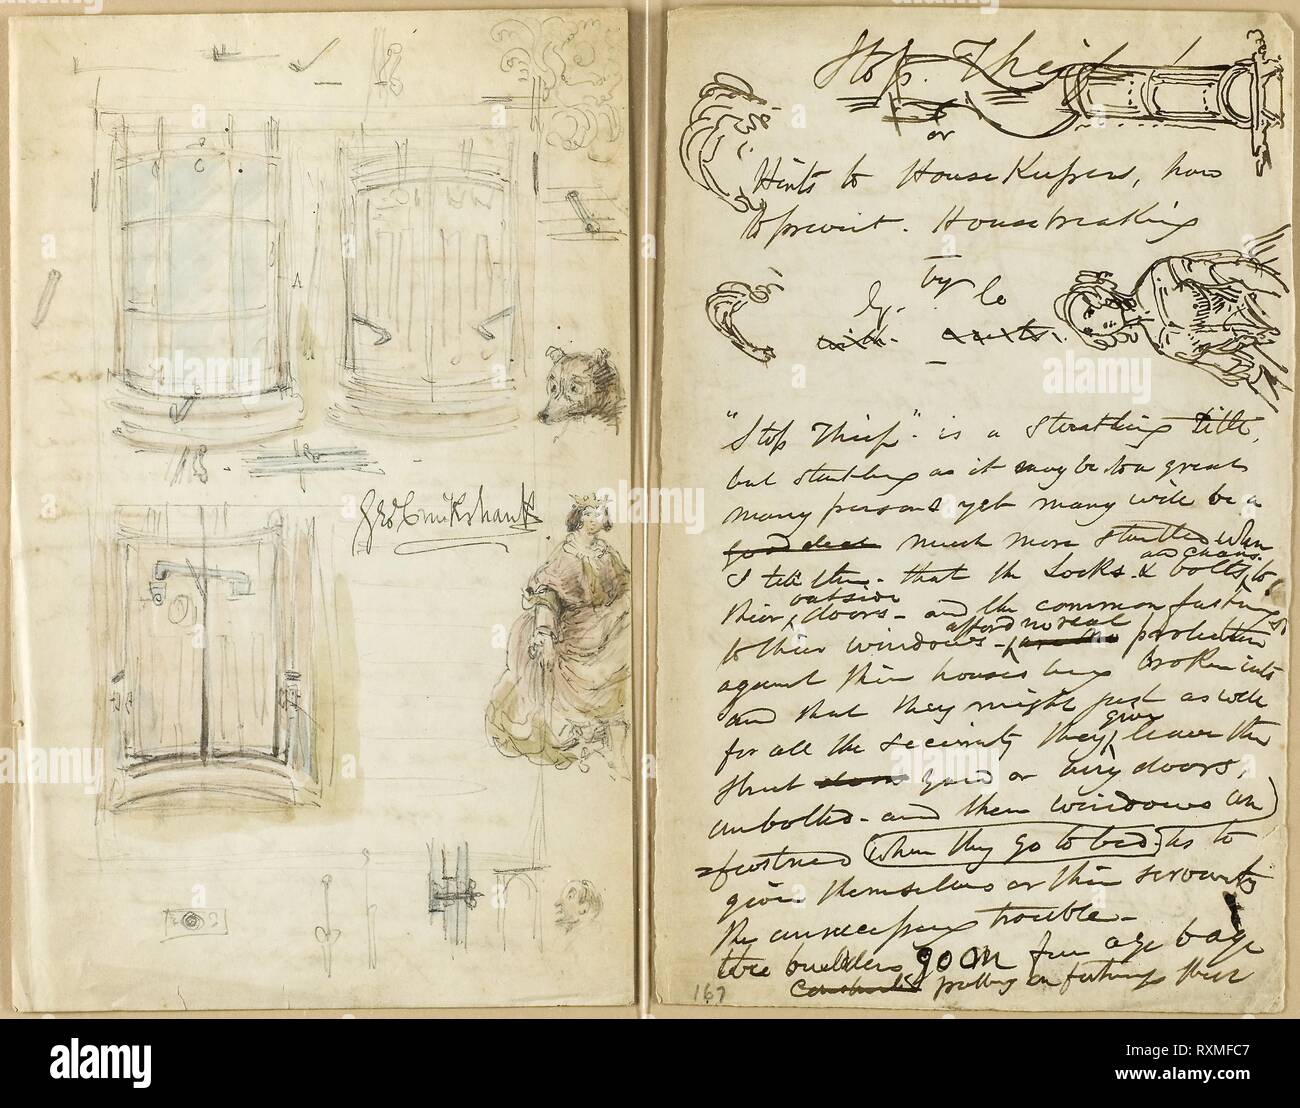 Geo Cruikshank
A
Stop Thief!
or
Hints to HouseKeepers, how
to prevent. Housebreaking
by
"Stop Thief" - is a Startling title,
but startling as it may be to a great
many persons yet many will be a
good deal much more startled when
I tell them - that the Locks & bolts, and chains. to
their outside doors - and the common fastenings
to their windows - afford no real protection
against their houses being broken into
and that they might just as well
for all the security they give leave their
street door yard or airy doors,
unbolted - and their windows un
=fastened when they go to bed. as to
give themselves or their servants
the unnecessary trouble -
The builders go on from age to age
putting on fastenings
167
alamy
alamy stock photo
Image ID: RXMFC7
www.alamy.com